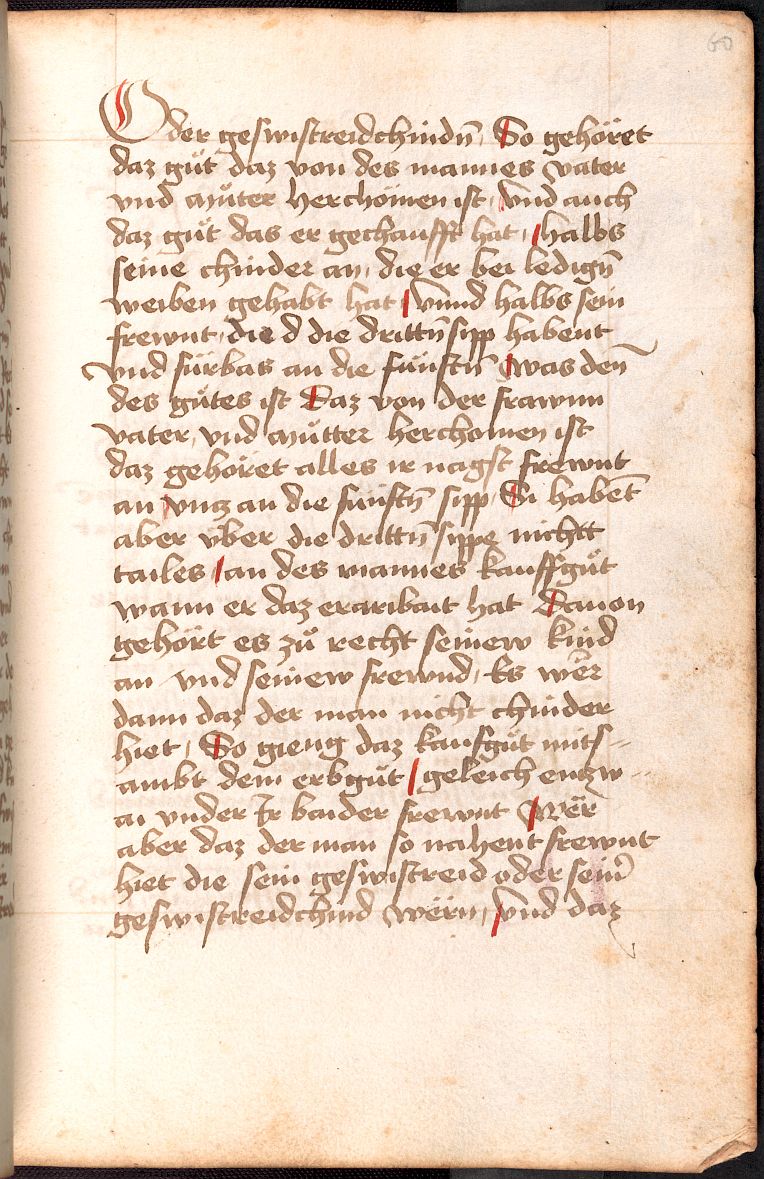 60
Oder geswistreidchindn̄, So gehöret
daz gůt daz von des mannes vater
vnd můter herchömen ist, vnd auch
daz gůt das er gechaufft hat, halbs
seine chinder an, die er bei ledign̄
weiben gehabt hat, vnnd halbs sein
frewnt, die d die drittn̄ sipp habent
vnd fürbas an die fünftn̄ was den̄
des gůtes ist Daz von der frawnn
vater, vnd můtter herchomen ist
daz gehöret alles ir nagst frewnt
an vntz an die fünftn̄ sipp, Si haben̄t
aber vber die drittn̄ sippe nichtt
tailes, an des mannes kauffgůt
wann er daz eraribait hat Dauon
gehört es zů recht seinew kind
an vnd seinew frewnd, Es wër
dann daz der man nicht chinder
hiet, So gieng daz kaufgůt mits-
ambt dem erbgůt, geleich entzw-
ai vnder Ir baider frewnt Wër
aber daz der man so nahent frewnt
hiet die sein geswistreid oder sein̄
geswistreidchind wërn, vnd daz